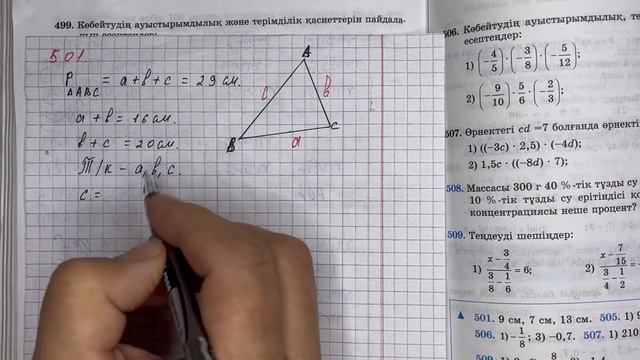 499. Көбейтудің ауыстырымдылық және терімділік қасиеттерін пайдала-
501.
P ΔABC = a + b + c = 29 см.
a + b = 16 см.
b + c = 20 см.
Т/к - a, b, c.
c =
A
B
C
c
b
a
506. Көбейтудің ауыстырымдылық, те
есептеңдер:
1) (-4/5) · (-3/8) · (-5/12);
2) (-9/10) · 5/6 · (-2/3);
507. Өрнектегі cd =7 болғанда өрнекті
1) ((–3c) · 2,5) · (–4d);
2) 1,5c · ((–8d) · 7);
508. Массасы 300 г 40 %-тік тұзды су
10 %-тік тұзды су ерітіндісі қ
концентрациясы неше процент?
509. Теңдеуді шешіңдер:
1) (x - 3/4)/(3/8 - 1/6) = 6;
2) (x - 7/15)/(3/4 - 1/2) =
501. 9 см, 7 см, 13 см. 505. 1) 9
506. 1) -1/8; 3) –0,7. 507. 1) 210